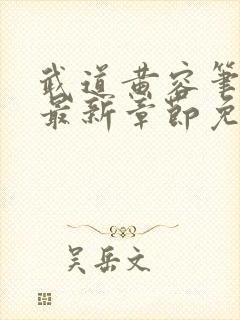 武道黄容笔
最新章节免
吴岳文